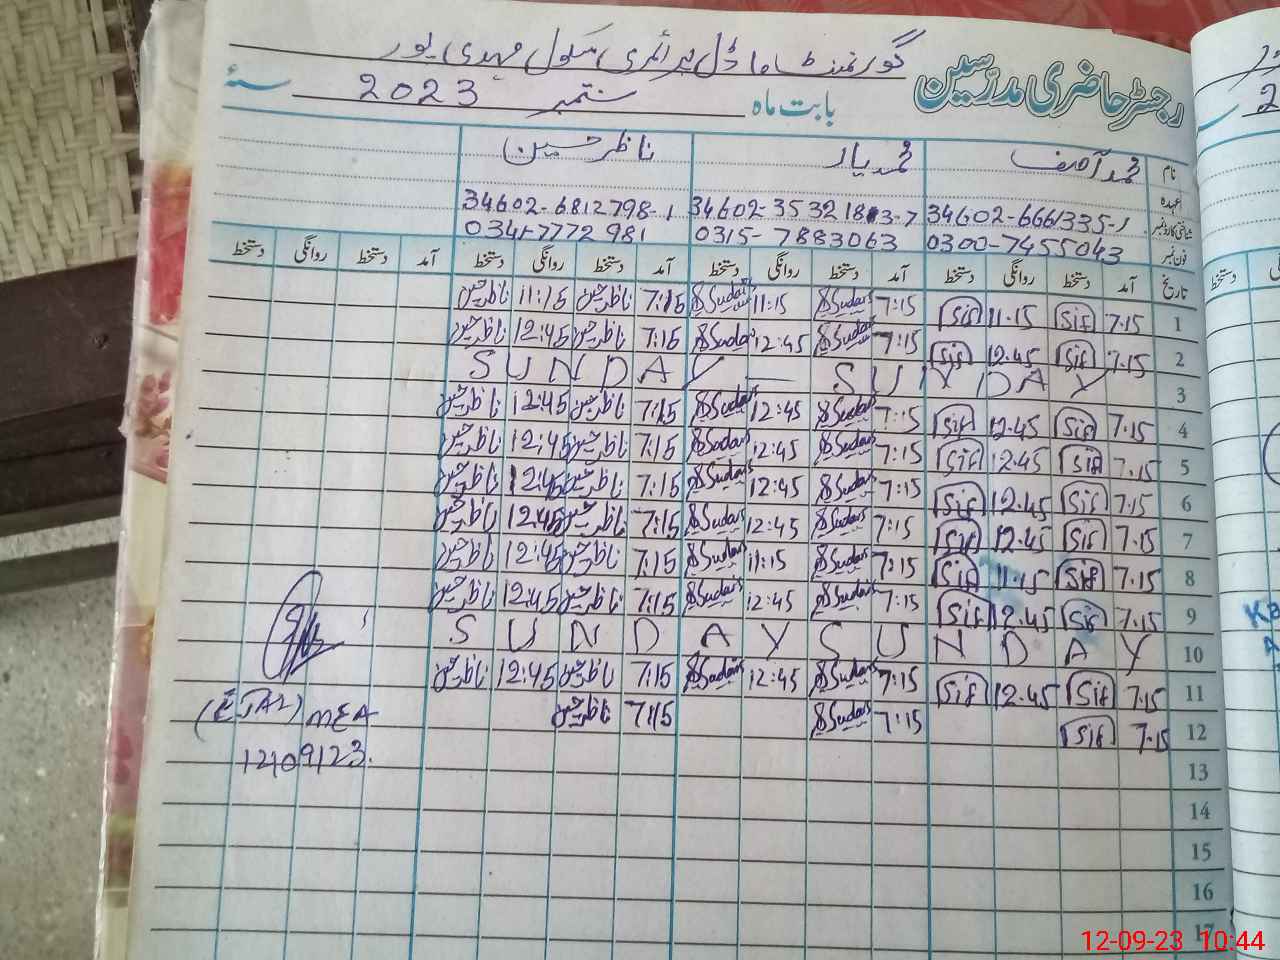 گورنمنٹ ماڈل پرائمری سکول مہدی پور
رجسٹر حاضری مدرسین
بابت ماہ ستمبر 2023 سنہ
نام محمد آصف محمد یار ناظر حسین
عہدہ
شناختی کارڈ نمبر 34602-6661335-1 34602-3532183-7 34602-6812798-1
فون نمبر 0300-7455043 0315-7883063 0341-7772981
تاریخ آمد دستخط روانگی دستخط آمد دستخط روانگی دستخط آمد دستخط روانگی دستخط آمد دستخط روانگی دستخط
1 7.15 Sif 11.15 Sif 7:15 SSudais 11:15 SSudais 7:15 ناظر حسین 11:15 ناظر حسین
2 7.15 Sif 12.45 Sif 7:15 SSudais 12:45 SSudais 7:15 ناظر حسین 12:45 ناظر حسین
3 SUNDAY — SUNDAY
4 7.15 Sif 12.45 Sif 7:15 SSudais 12:45 SSudais 7:15 ناظر حسین 12:45 ناظر حسین
5 7.15 Sif 12.45 Sif 7:15 SSudais 12:45 SSudais 7:15 ناظر حسین 12:45 ناظر حسین
6 7.15 Sif 12.45 Sif 7:15 SSudais 12:45 SSudais 7:15 ناظر حسین 12:45 ناظر حسین
7 7.15 Sif 12.45 Sif 7:15 SSudais 12:45 SSudais 7:15 ناظر حسین 12:45 ناظر حسین
8 7.15 Sif 11.15 Sif 7:15 SSudais 11:15 SSudais 7:15 ناظر حسین 12:45 ناظر حسین
9 7.15 Sif 12.45 Sif 7:15 SSudais 12:45 SSudais 7:15 ناظر حسین 12:45 ناظر حسین
10 SUNDAY SUNDAY
11 7.15 Sif 12.45 Sif 7:15 SSudais 12:45 SSudais 7:15 ناظر حسین 12:45 ناظر حسین
12 7.15 Sif 7:15 SSudais 7:15 ناظر حسین
MEA
12/09/23.
13
14
15
16
17
12-09-23 10:44